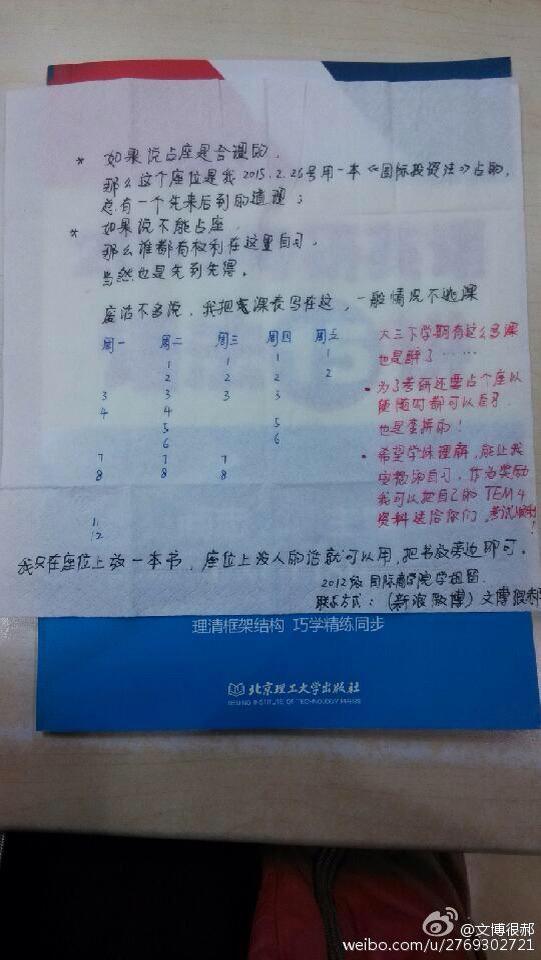 * 如果说占座是合理的,
那么这个座位是我2015.2.26号用一本《国际投资法》占的,
总有一个先来后到的道理;
* 如果说不能占座,
那么谁都有权利在这里自习,
当然也是先到先得。
废话不多说,我把课表写在这,一般情况不逃课
周一 周二 周三 周四 周五
1 1 1 1
2 2 2 2
3 3 3 3
4 4
5 5
6 6
7 7 7
8 8 8
11
12
大三下学期有这么多课
也是醉了……
·为了考研还要占个座以
便随时都可以自习
也是蛮拼的!
·希望学妹理解,能让我
安稳的自习,作为奖励
我可以把自己的TEM4
资料送给你们,考试顺利!
我只在座位上放一本书,座位上没人的话就可以用,把书放旁边即可。
2012级国际商学院学姐留
联系方式:(新浪微博)文博很郝
理清框架结构 巧学精练同步
北京理工大学出版社
BEIJING INSTITUTE OF TECHNOLOGY PRESS
@文博很郝
weibo.com/u/2769302721